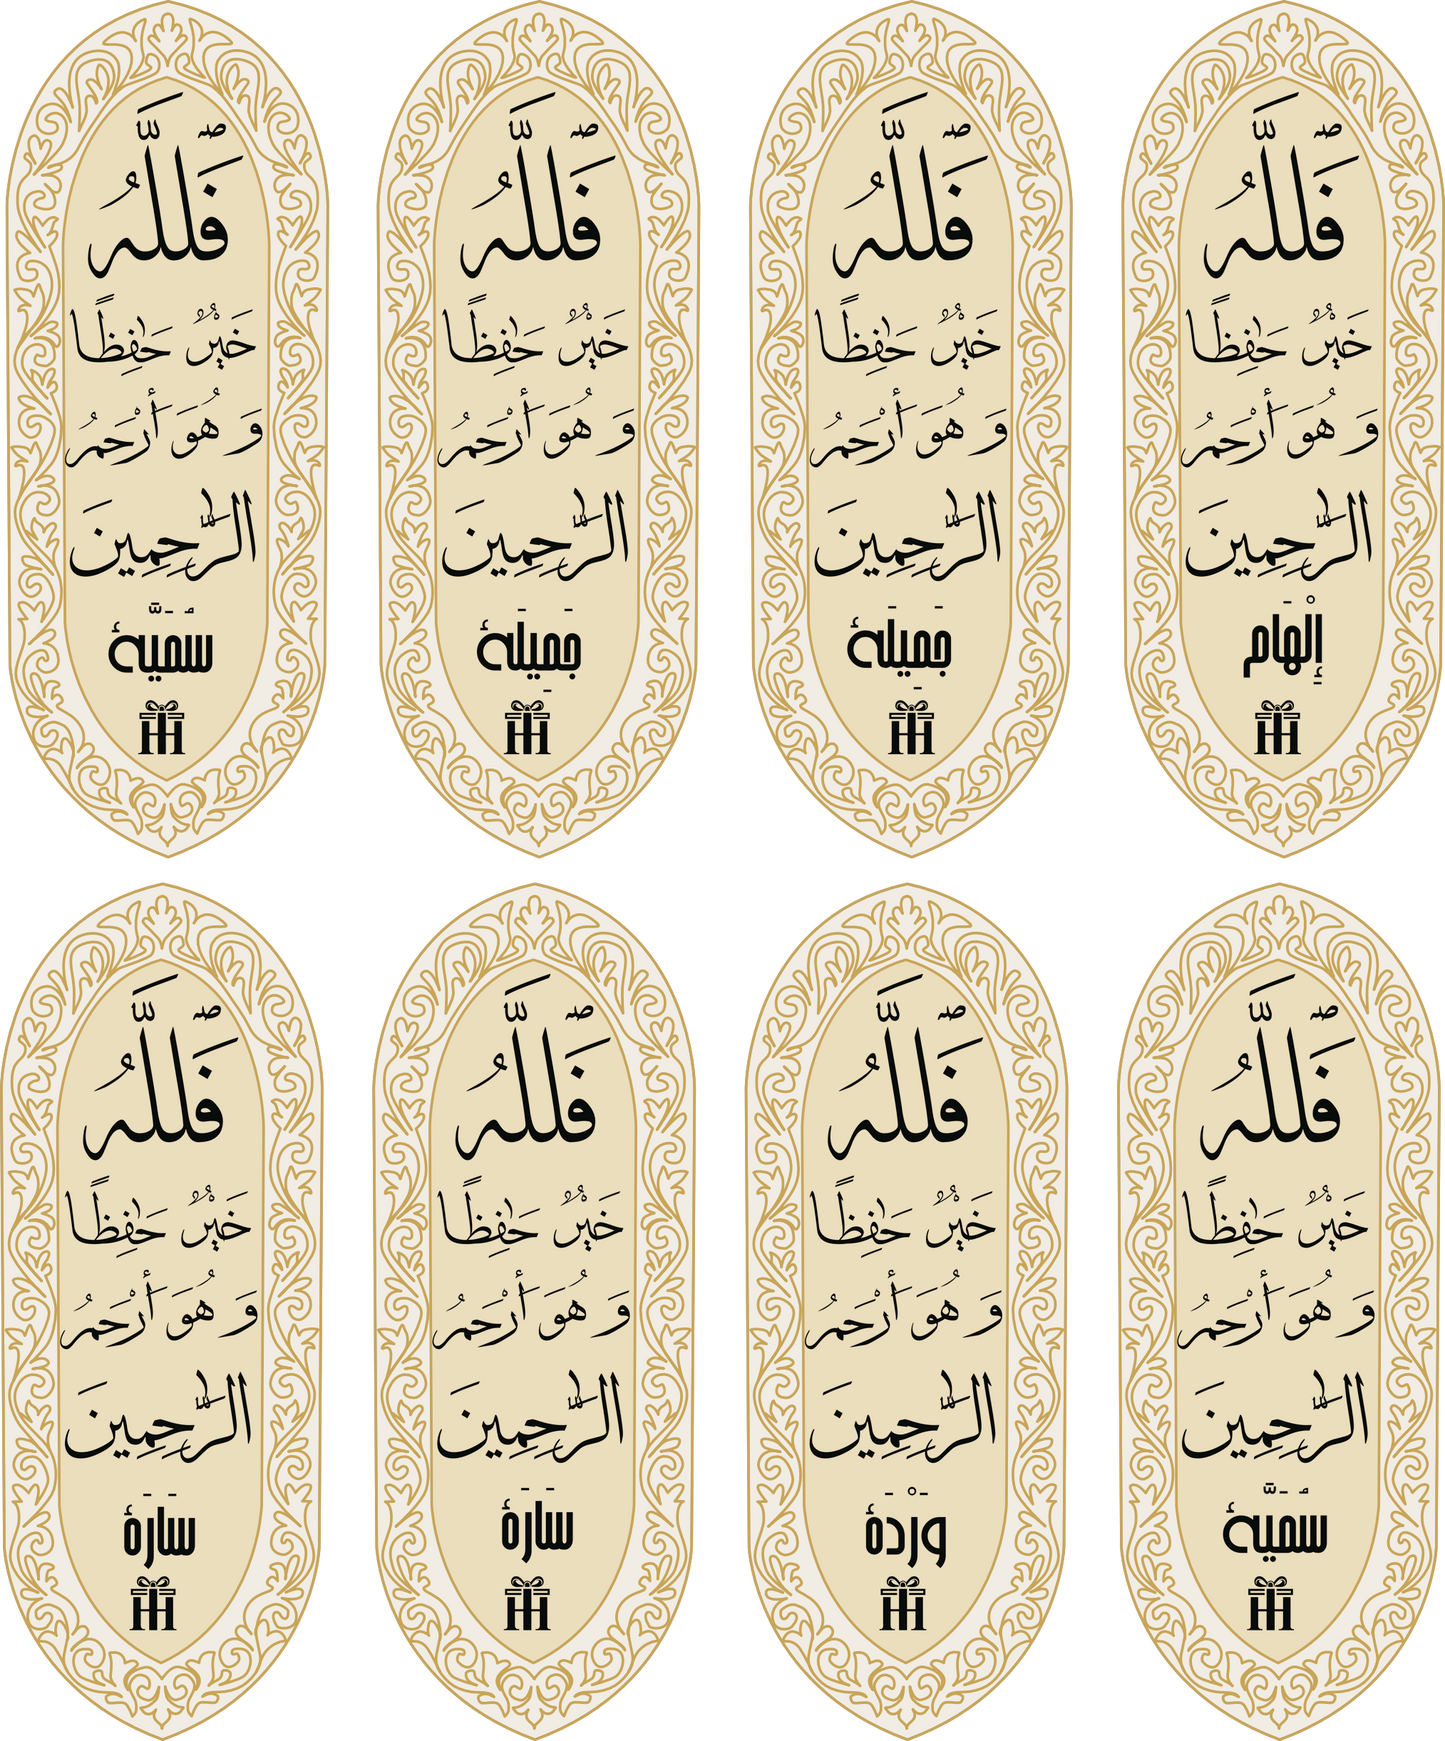 فَٱللَّهُ ۖ
خَيْرٌ حَٰفِظًا
وَ هُوَ أَرْحَمُ
الرَّٰحِمِينَ
سُمَيَّة
فَٱللَّهُ ۖ
خَيْرٌ حَٰفِظًا
وَ هُوَ أَرْحَمُ
الرَّٰحِمِينَ
جَمِيلَة
فَٱللَّهُ ۖ
خَيْرٌ حَٰفِظًا
وَ هُوَ أَرْحَمُ
الرَّٰحِمِينَ
جَمِيلَة
فَٱللَّهُ ۖ
خَيْرٌ حَٰفِظًا
وَ هُوَ أَرْحَمُ
الرَّٰحِمِينَ
إِلْهَام
فَٱللَّهُ ۖ
خَيْرٌ حَٰفِظًا
وَ هُوَ أَرْحَمُ
الرَّٰحِمِينَ
سَارَة
فَٱللَّهُ ۖ
خَيْرٌ حَٰفِظًا
وَ هُوَ أَرْحَمُ
الرَّٰحِمِينَ
سَارَة
فَٱللَّهُ ۖ
خَيْرٌ حَٰفِظًا
وَ هُوَ أَرْحَمُ
الرَّٰحِمِينَ
وَرْدَة
فَٱللَّهُ ۖ
خَيْرٌ حَٰفِظًا
وَ هُوَ أَرْحَمُ
الرَّٰحِمِينَ
سُمَيَّة